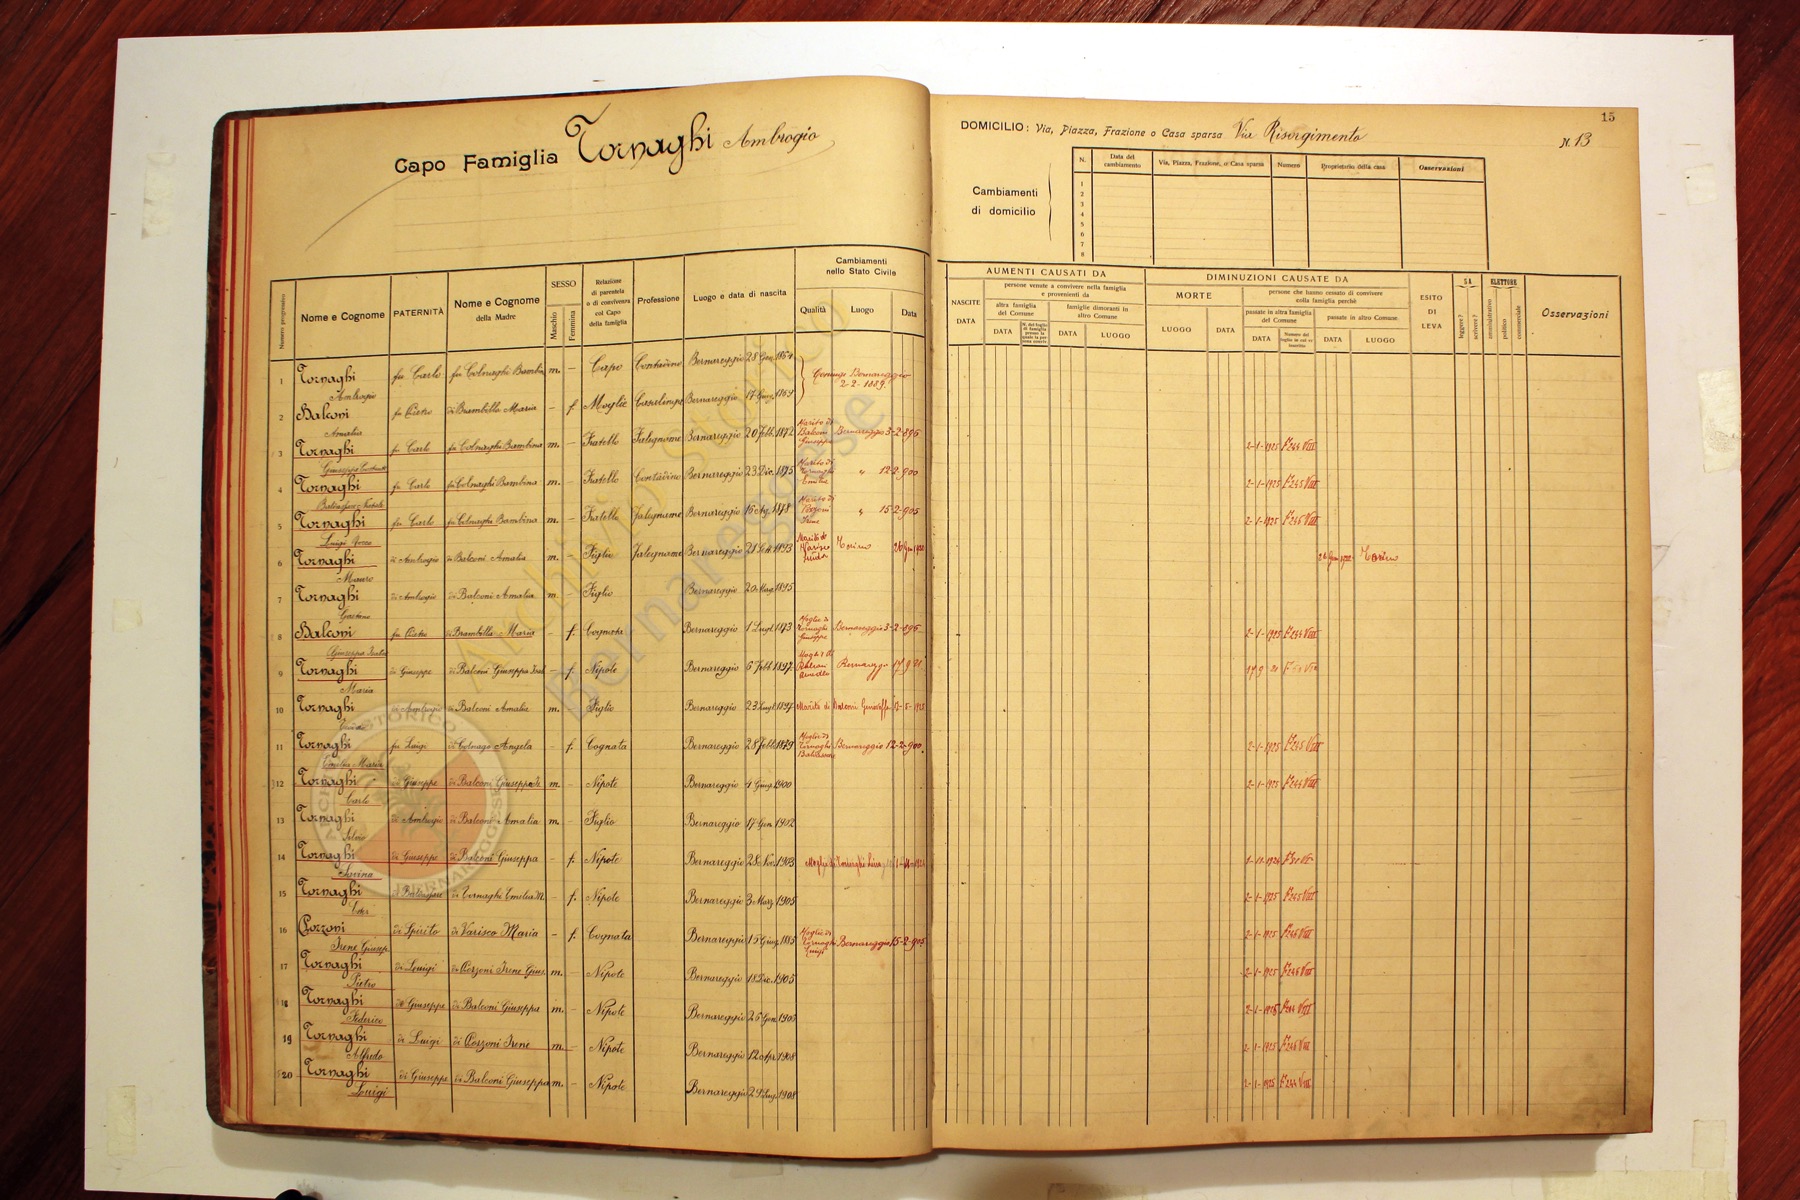 Capo Famiglia Tornaghi Ambrogio
15
DOMICILIO: Via, Piazza, Frazione o Casa sparsa Via Risorgimento N. 13
Cambiamenti di domicilio
N. Data del cambiamento Via, Piazza, Frazione, o Casa sparsa Numero Proprietario della casa Osservazioni
1
2
3
4
5
6
7
8
Numero progressivo Nome e Cognome PATERNITÀ Nome e Cognome della Madre SESSO Maschio Femmina Relazione di parentela o di convivenza col Capo della famiglia Professione Luogo e data di nascita Cambiamenti nello Stato Civile Qualità Luogo Data
AUMENTI CAUSATI DA
NASCITE DATA
persone venute a convivere nella famiglia e provenienti da
altra famiglia del Comune DATA
famiglie dimoranti in altro Comune DATA LUOGO
DIMINUZIONI CAUSATE DA
MORTE LUOGO DATA
persone che hanno cessato di convivere colla famiglia perchè
passate in altra famiglia del Comune DATA Numero del foglio in cui si inscrive
passate in altro Comune DATA LUOGO
ESITO DI LEVA
SA leggere? scrivere?
ELETTORE amministrativo politico commerciale
Osservazioni
1 Tornaghi Ambrogio fu Carlo fu Colnaghi Bambina m. – Capo Contadino Bernareggio 28 Gen. 1864 Coniugi Bernareggio 2-2-1889
2 Balconi Amalia fu Pietro di Brambilla Maria – f. Moglie Casalinga Bernareggio 17 Giug. 1869
3 Tornaghi Giuseppe fu Carlo fu Colnaghi Bambina m. – Fratello Falegname Bernareggio 20 Febb. 1872 Marito di Balconi Giuseppa Bernareggio 3-2-896 2-1-1925 F° 244 VIII
4 Tornaghi fu Carlo fu Colnaghi Bambina m. – Fratello Contadino Bernareggio 23 Dic. 1875 Marito di Tornaghi Emilia " 12-2-900 2-1-1925 F° 245 VIII
5 Tornaghi Luigi fu Carlo fu Colnaghi Bambina m. – Fratello Falegname Bernareggio 16 Ag. 1878 Marito di Pozzoni Irene " 15-2-905 2-1-1925 F° 246 VIII
6 Tornaghi Mauro di Ambrogio di Balconi Amalia m. – Figlio Falegname Bernareggio 21 Sett. 1893 Marito di Torino Torino
7 Tornaghi di Ambrogio di Balconi Amalia m. Figlio Bernareggio 20 1895
8 Balconi Giuseppa fu Pietro di Brambilla Maria – f. Cognata Bernareggio 1 Lugl. 1873 Moglie di Tornaghi Giuseppe Bernareggio 3-2-896 2-1-1925 F° 244 VIII
9 Tornaghi Maria di Giuseppe di Balconi Giuseppa – f. Nipote Bernareggio 6 Febb. 1897 Moglie di Amedeo Bernareggio 17-9-21 17-9-21
10 Tornaghi di Ambrogio di Balconi Amalia m. Figlio Bernareggio 23 Lugl. 1897 Marito di Balconi
11 Tornaghi Emilia Maria fu Luigi di Colnago Angela – f. Cognata Bernareggio 28 Febb. 1879 Moglie di Tornaghi Baldassare Bernareggio 12-2-900 2-1-1925 F° 245 VIII
12 Tornaghi Carlo di Giuseppe di Balconi Giuseppa m. – Nipote Bernareggio Giug. 1900 2-1-1925 F° 244 VIII
13 Tornaghi Silvio di Ambrogio di Balconi Amalia m. – Figlio Bernareggio 17 Gen. 1902
14 Tornaghi Savina di Giuseppe di Balconi Giuseppa – f. Nipote Bernareggio 28 Nov. 1903 Moglie di
15 Tornaghi Ester di Baldassare di Tornaghi Emilia M. – f. Nipote Bernareggio 3 Marz. 1905 2-1-1925 F° 245 VIII
16 Pozzoni Irene Giusep. di Spirito di Varisco Maria – f. Cognata Bernareggio 15 Giug. 1885 Moglie di Tornaghi Luigi Bernareggio 15-2-905 2-1-1925 F° 246 VIII
17 Tornaghi Pietro di Luigi di Pozzoni Irene Gius. m. – Nipote Bernareggio 18 Dic. 1905 2-1-1925 F° 246 VIII
18 Tornaghi Federico di Giuseppe di Balconi Giuseppa m. – Nipote Bernareggio 26 Gen. 1905 2-1-1925 F° 244 VIII
19 Tornaghi Alfredo di Luigi di Pozzoni Irene m. – Nipote Bernareggio 12 Apr. 1908 2-1-1925 F° 246 VIII
20 Tornaghi Luigi di Giuseppe di Balconi Giuseppa m. – Nipote Bernareggio 1908 2-1-1925 F° 244 VIII
Archivio Storico
Bernareggese
ARCHIVIO STORICO
BERNAREGGESE